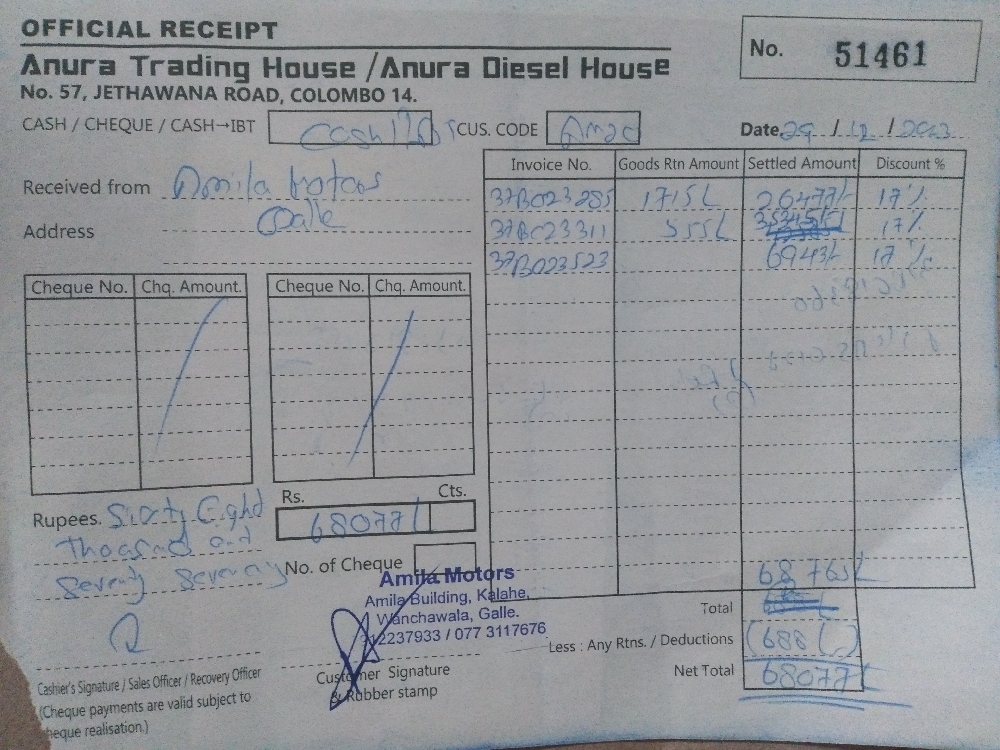 OFFICIAL RECEIPT
No. 51461
Anura Trading House / Anura Diesel House
No. 57, JETHAWANA ROAD, COLOMBO 14.
CASH / CHEQUE / CASH→IBT Cash CUS. CODE Date. 29 / 12 / 2023
Received from Amila Motors
Address Galle
Invoice No. Goods Rtn Amount Settled Amount Discount %
37B023285 1715/- 26477/- 17%
37B023311 555/- 17%
37B023523 6943/- 17%
Cheque No. Chq. Amount. Cheque No. Chq. Amount.
Rs. Cts.
Rupees. Sixty Eight 68077/
Thousand and
Seventy
No. of Cheque
Amila Motors
Amila Building, Kalahe,
Wanchawala, Galle.
2237933 / 077 3117676
68765/-
Total
Less : Any Rtns. / Deductions (688/-)
Net Total 68077/-
Customer Signature
& Rubber stamp
Cashier's Signature / Sales Officer / Recovery Officer
(Cheque payments are valid subject to
cheque realisation.)